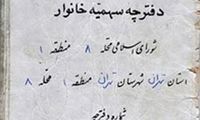 دفترچه سهمیّه خانوار
شورای اسلامی محله ۸ منطقه ۱
استان تهران شهرستان تهران منطقه ۱ محله ۸
شماره دفترچه